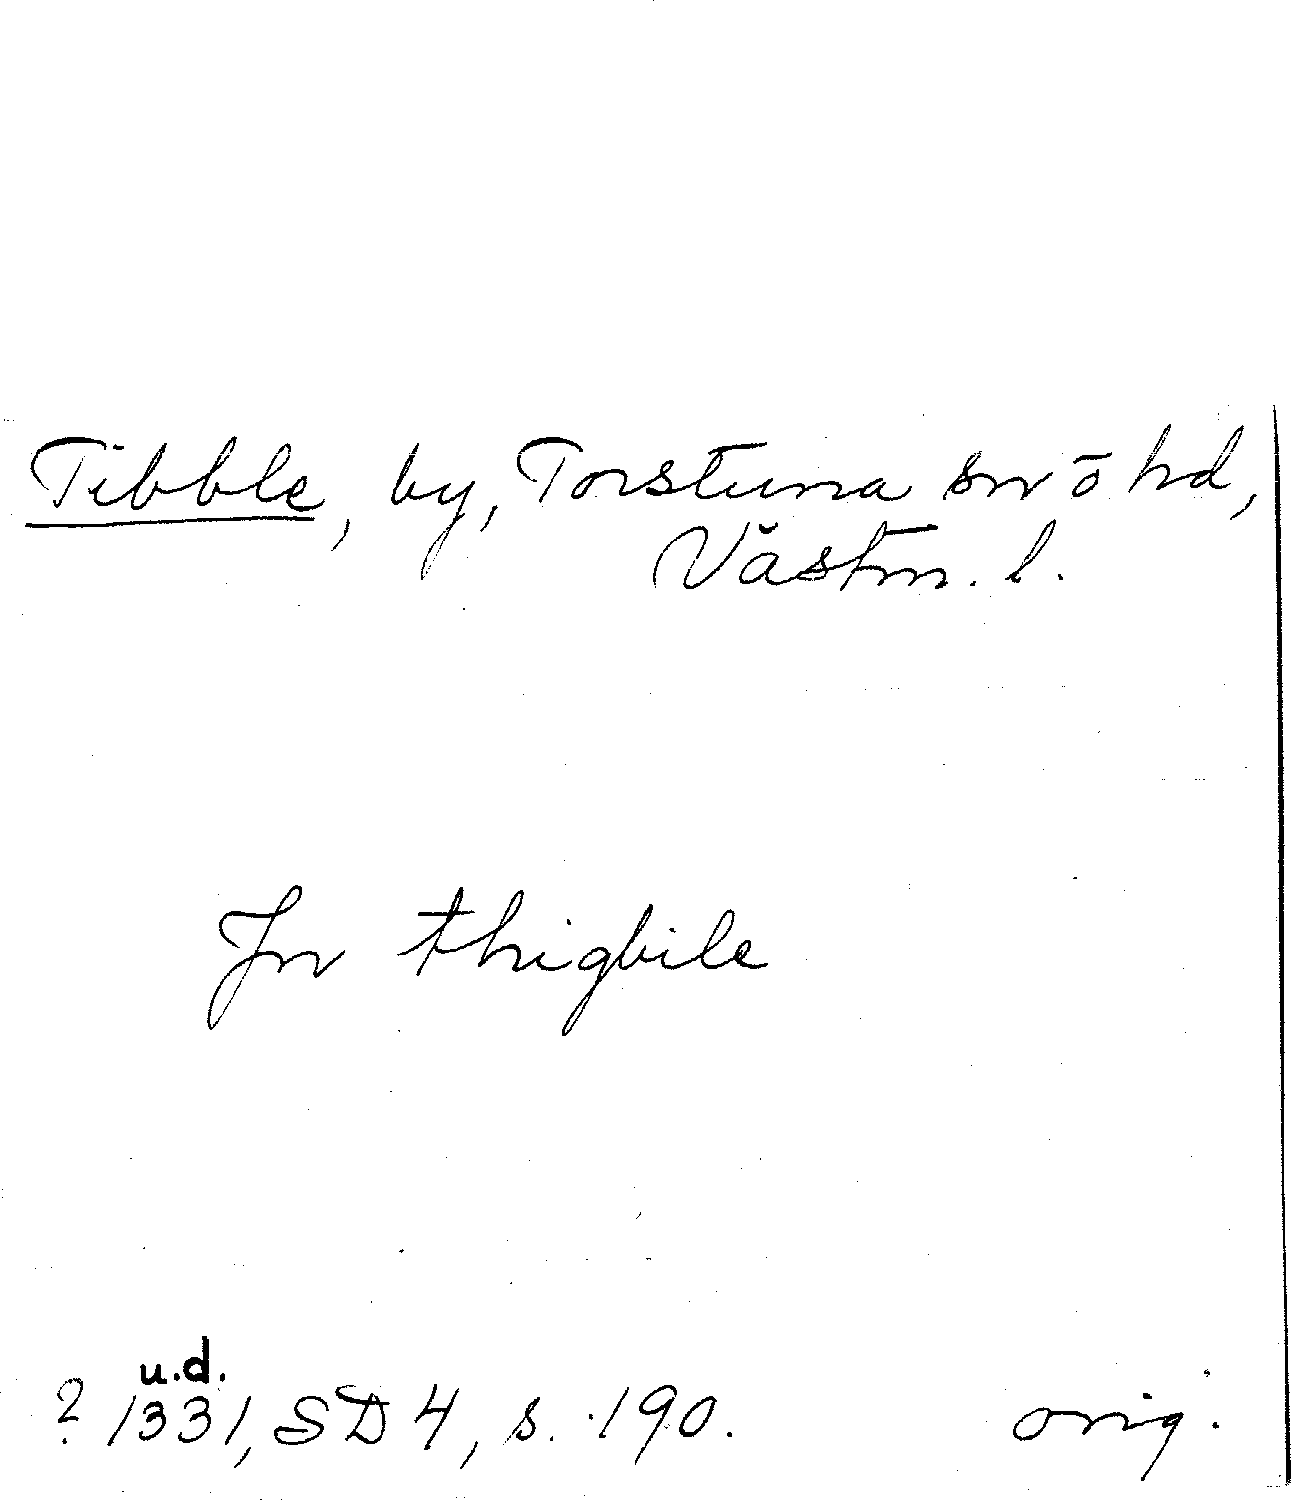 Tibble, by, Torstuna sn o hd,
Västm. l.
Jn thigbile
u.d.
? 1331, SD 4, s. 190. orig.